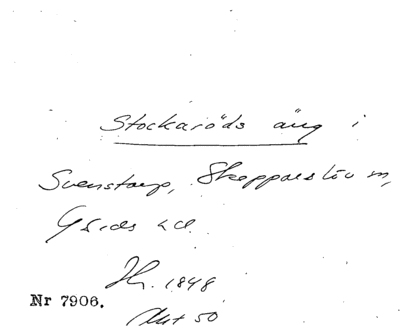 Stockaröds äng i
Svenstorp, Skepparslöv sn,
Gärds hd.
Hr. 1848
Nr 7906.
Akt 50